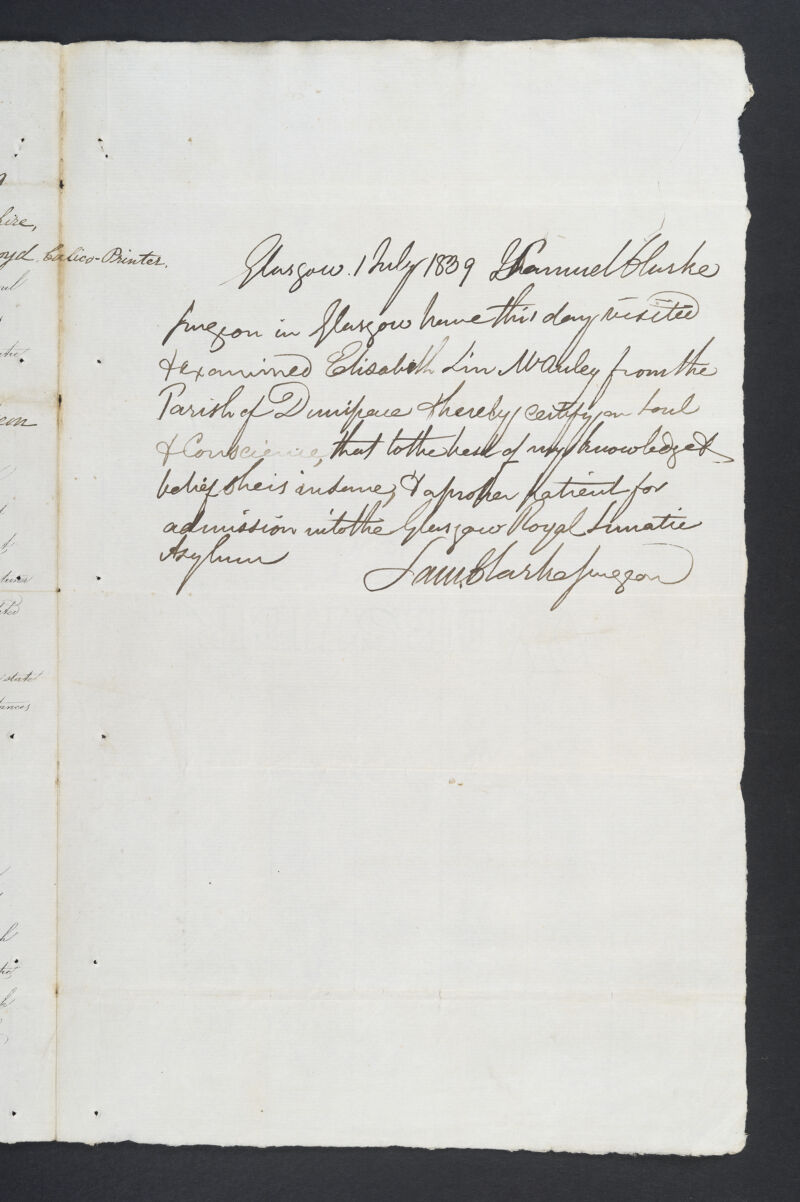 Calico-Printer.
Glasgow 1 July 1839 I Samuel Clarke
surgeon in Glasgow have this day visited
& examined Elisabeth Lin McAuley from the
Parish of Dunipace & hereby certify on Soul
& Conscience, that to the best of my knowledge &
belief she is insane, & a proper patient for
admission into the Glasgow Royal Lunatic
Asylum
Sam. Clarke surgeon